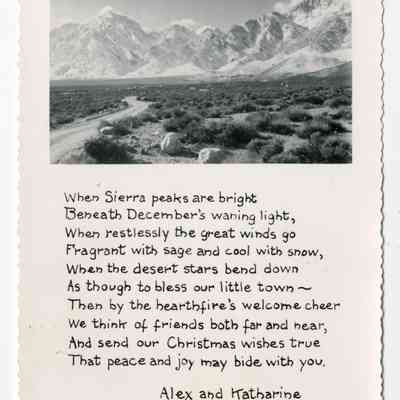 When Sierra peaks are bright
Beneath December's waning light,
When restlessly the great winds go
Fragrant with sage and cool with snow,
When the desert stars bend down
As though to bless our little town ~
Then by the hearthfire's welcome cheer
We think of friends both far and near,
And send our Christmas wishes true
That peace and joy may bide with you.
Alex and Katharine